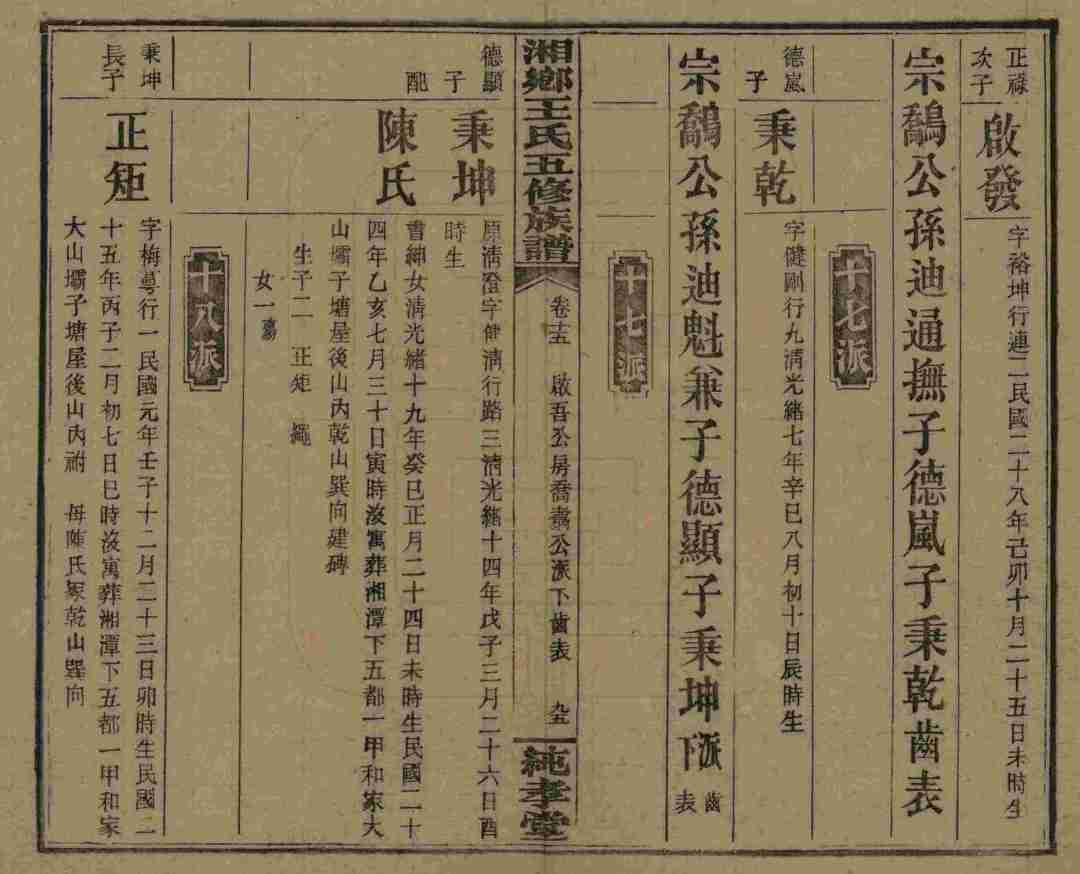 正祿次子
啟發
字裕坤行連二民國二十八年己卯十月二十五日未時生
宗鷸公孫迪通撫子德嵐子秉乾齒表
十七派
德嵐子
秉乾
字健剛行九清光緒七年辛巳八月初十日辰時生
宗鷸公孫迪魁兼子德顯子秉坤派下齒表
十七派
湘鄉王氏五修族譜
卷十五
啟吾公房喬嵩公派下齒表
九五
純孝堂
德顯子
秉坤
原清澄字健清行路三清光緒十四年戊子三月二十六日酉
時生
配
陳氏
書紳女清光緒十九年癸巳正月二十四日未時生民國二十
四年乙亥七月三十日寅時沒寓葬湘潭下五都一甲和家大
山壩子塘屋後山內乾山巽向建碑
生子二 正矩 繩
女一殤
十八派
秉坤長子
正矩
字梅蕚行一民國元年壬子十二月二十三日卯時生民國二
十五年丙子二月初七日巳時沒寓葬湘潭下五都一甲和家
大山壩子塘屋後山內祔 母陳氏冢乾山巽向